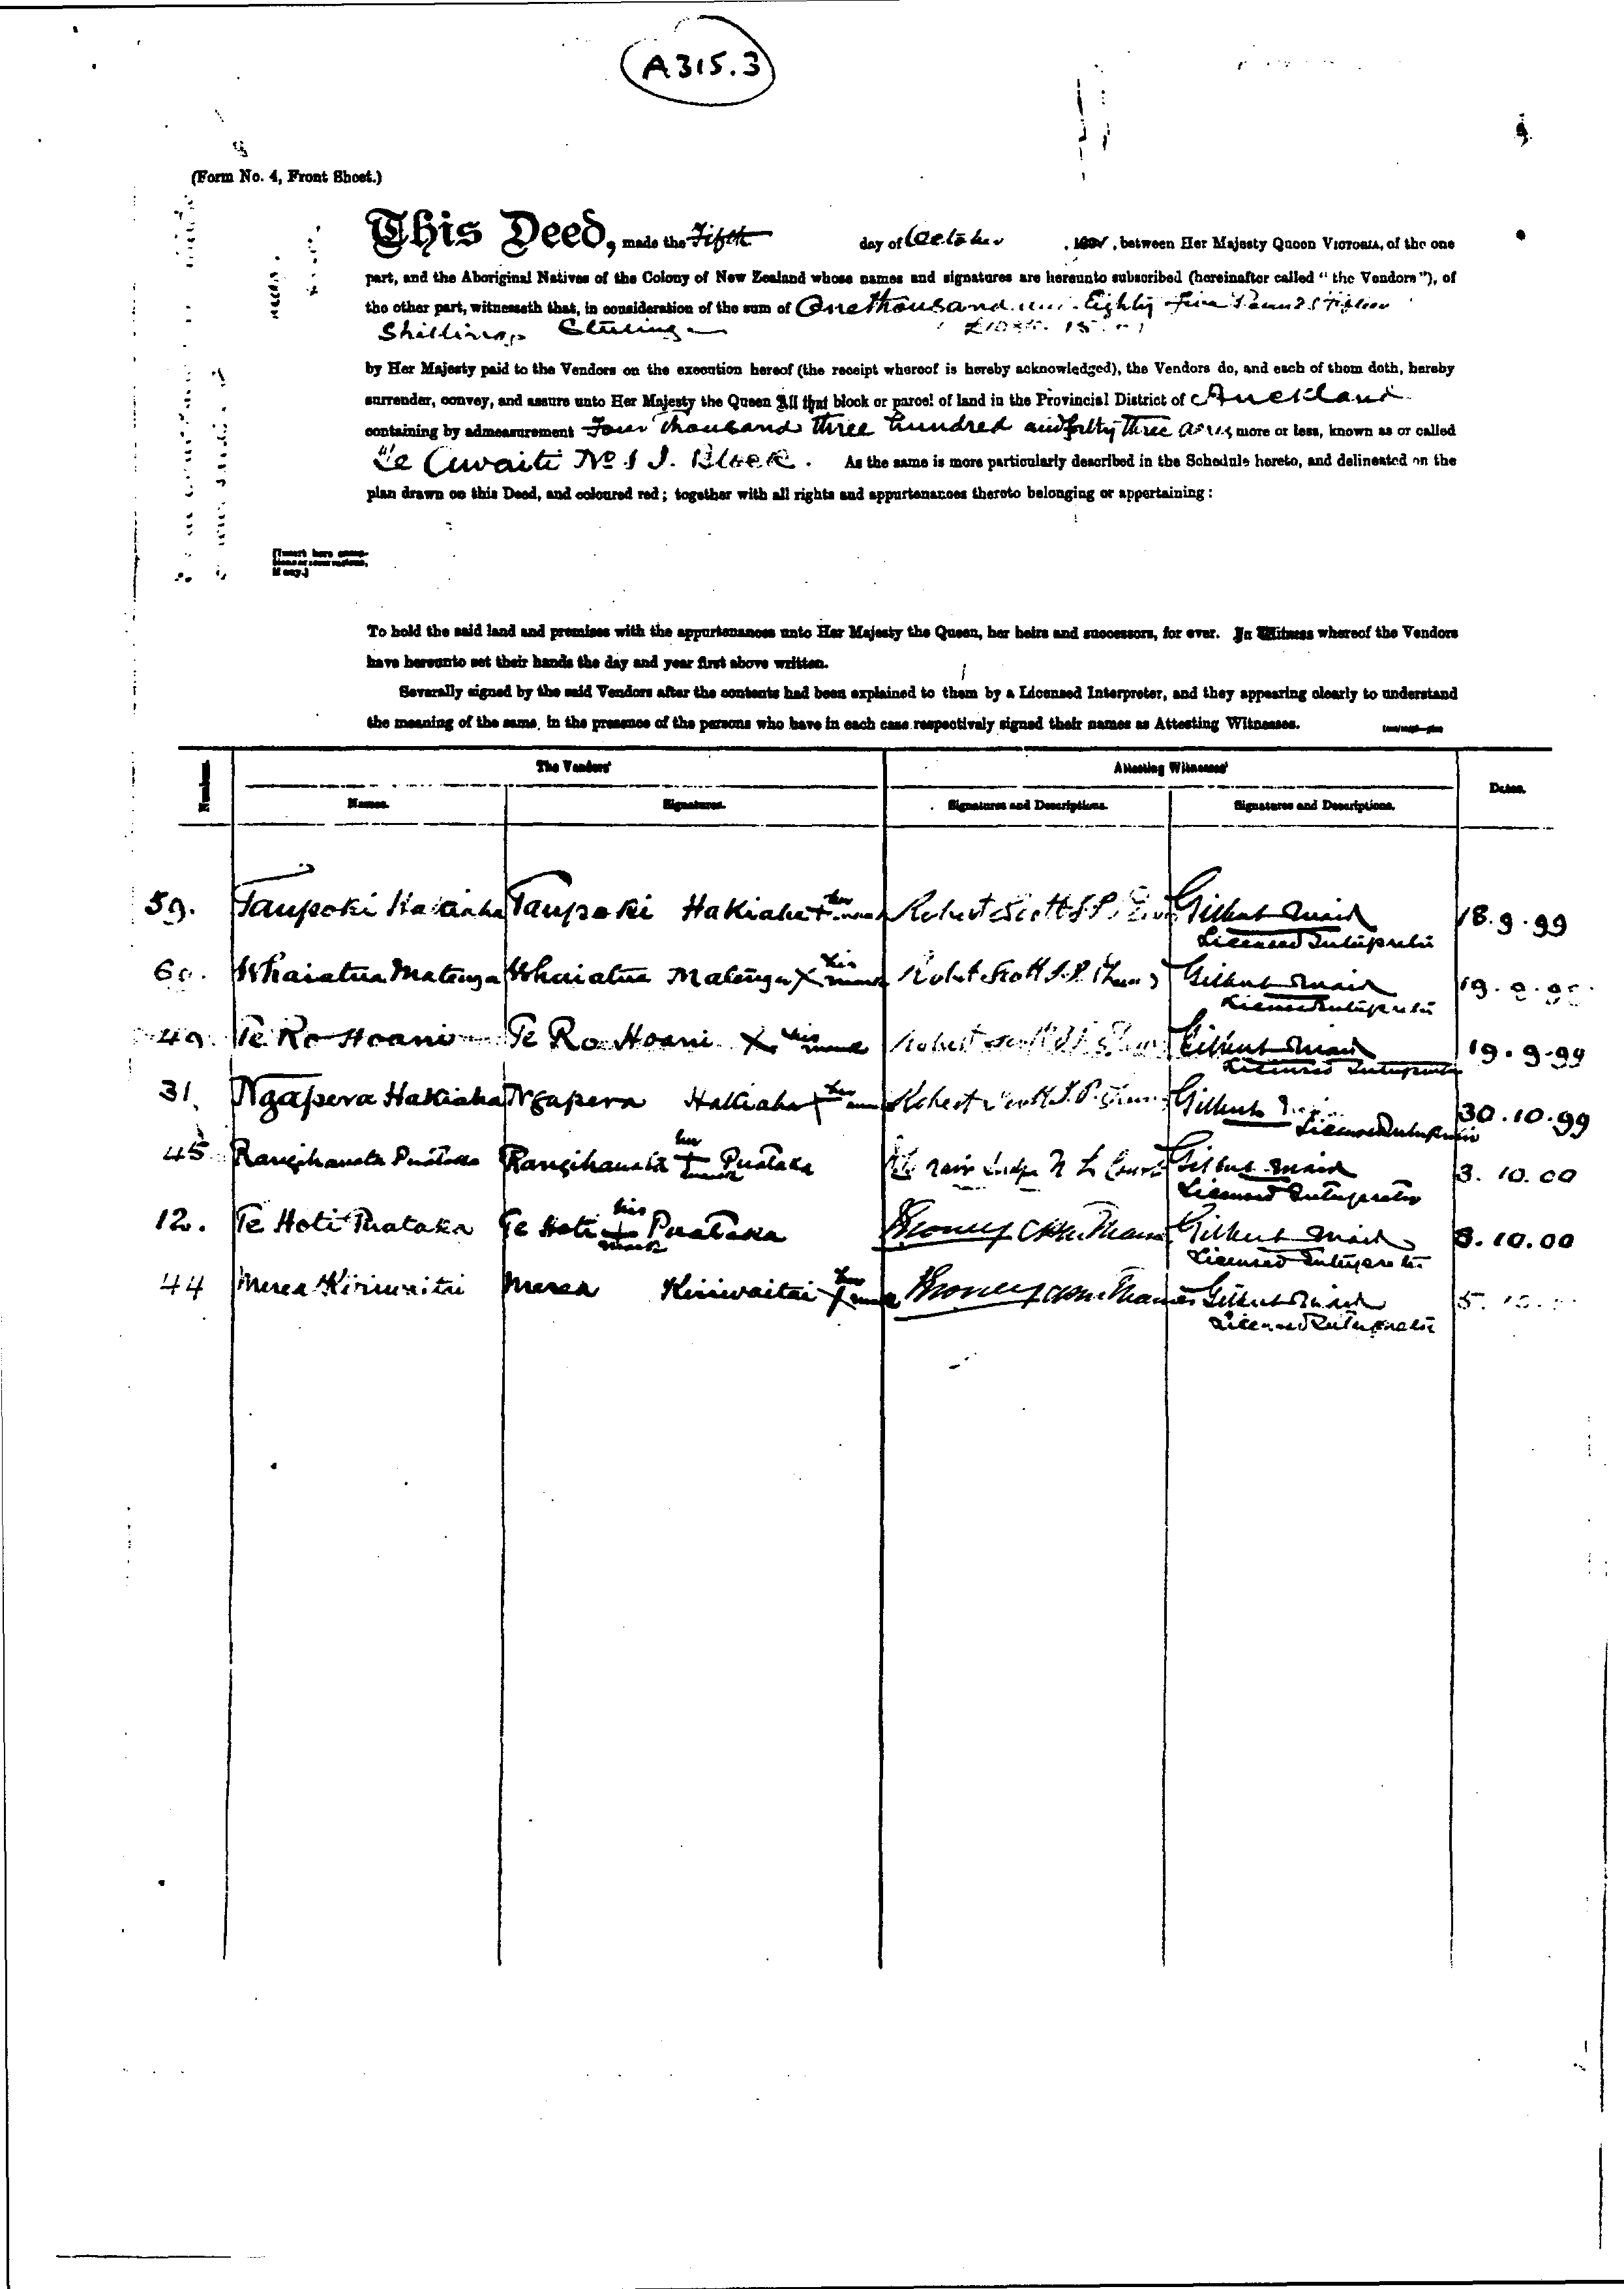 A315.3
(Form No. 4, Front Sheet.)
This Deed, made the Fifth day of October , between Her Majesty Queen VICTORIA, of the one
part, and the Aboriginal Natives of the Colony of New Zealand whose names and signatures are hereunto subscribed (hereinafter called "the Vendors"), of
the other part, witnesseth that, in consideration of the sum of One thousand and Eighty five Pounds fifteen
Shillings Sterling
by Her Majesty paid to the Vendors on the execution hereof (the receipt whereof is hereby acknowledged), the Vendors do, and each of them doth, hereby
surrender, convey, and assure unto Her Majesty the Queen All that block or parcel of land in the Provincial District of Auckland
containing by admeasurement Four thousand three hundred and fifty three acres more or less, known as or called
Te No 1 J. Block. As the same is more particularly described in the Schedule hereto, and delineated on the
plan drawn on this Deed, and coloured red; together with all rights and appurtenances thereto belonging or appertaining:
[Insert here
if any.]
To hold the said land and premises with the appurtenances unto Her Majesty the Queen, her heirs and successors, for ever. In Witness whereof the Vendors
have hereunto set their hands the day and year first above written.
Severally signed by the said Vendors after the contents had been explained to them by a Licensed Interpreter, and they appearing clearly to understand
the meaning of the same, in the presence of the persons who have in each case respectively signed their names as Attesting Witnesses.
The Vendors' Attesting Witnesses' Dates.
Names. Signatures. Signatures and Descriptions. Signatures and Descriptions.
59. Taupoki Hakiaha Taupoki Hakiaha her x mark Robert Scott J.P. Gilbert Mair Licensed Interpreter 18.9.99
60. Whaiatua Matenga Whaiatua Matenga his x mark Robert Scott J.P. Gilbert Mair Licensed Interpreter 19.9.99
49. Te Ro Hoani Te Ro Hoani x his mark Robert Scott J.P. Gilbert Mair Licensed Interpreter 19.9.99
31. Ngapera Hakiaha Ngapera Hakiaha her x mark Robert Scott J.P. Gilbert Licensed Interpreter 30.10.99
45 Rangihauata Puataka Rangihauata her x mark Puataka Judge N L Court Gilbert Mair Licensed Interpreter 3.10.00
12. Te Hoti Puataka Te Hoti his x mark Puataka Gilbert Mair Licensed Interpreter 3.10.00
44 Merea Kiriwaitai Merea Kiriwaitai her x mark Gilbert Mair Licensed Interpreter